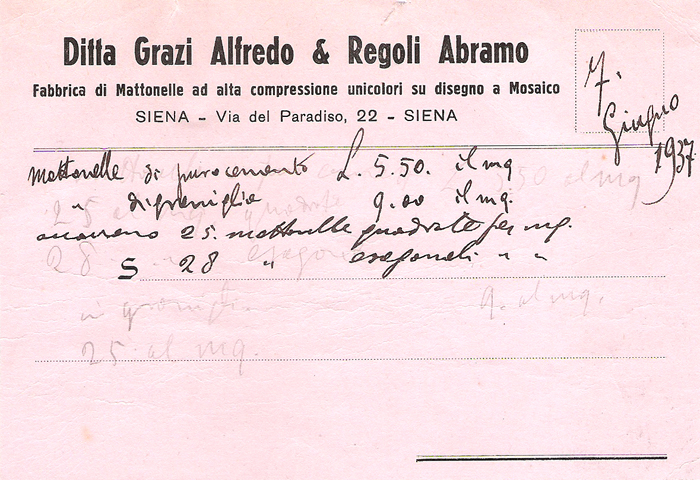 Ditta Grazi Alfredo & Regoli Abramo
Fabbrica di Mattonelle ad alta compressione unicolori su disegno a Mosaico
SIENA - Via del Paradiso, 22 - SIENA
7.
Giugno
1937
mattonelle di puro cemento L. 5.50. il mq
" di graniglia 9.00 il mq.
occorrono 25. mattonelle quadrate per mq.
S 28 " esagonali " "
5.50 al mq
25 al mq quadrate
28 esagon
in graniglia 9. al mq.
25 al mq.